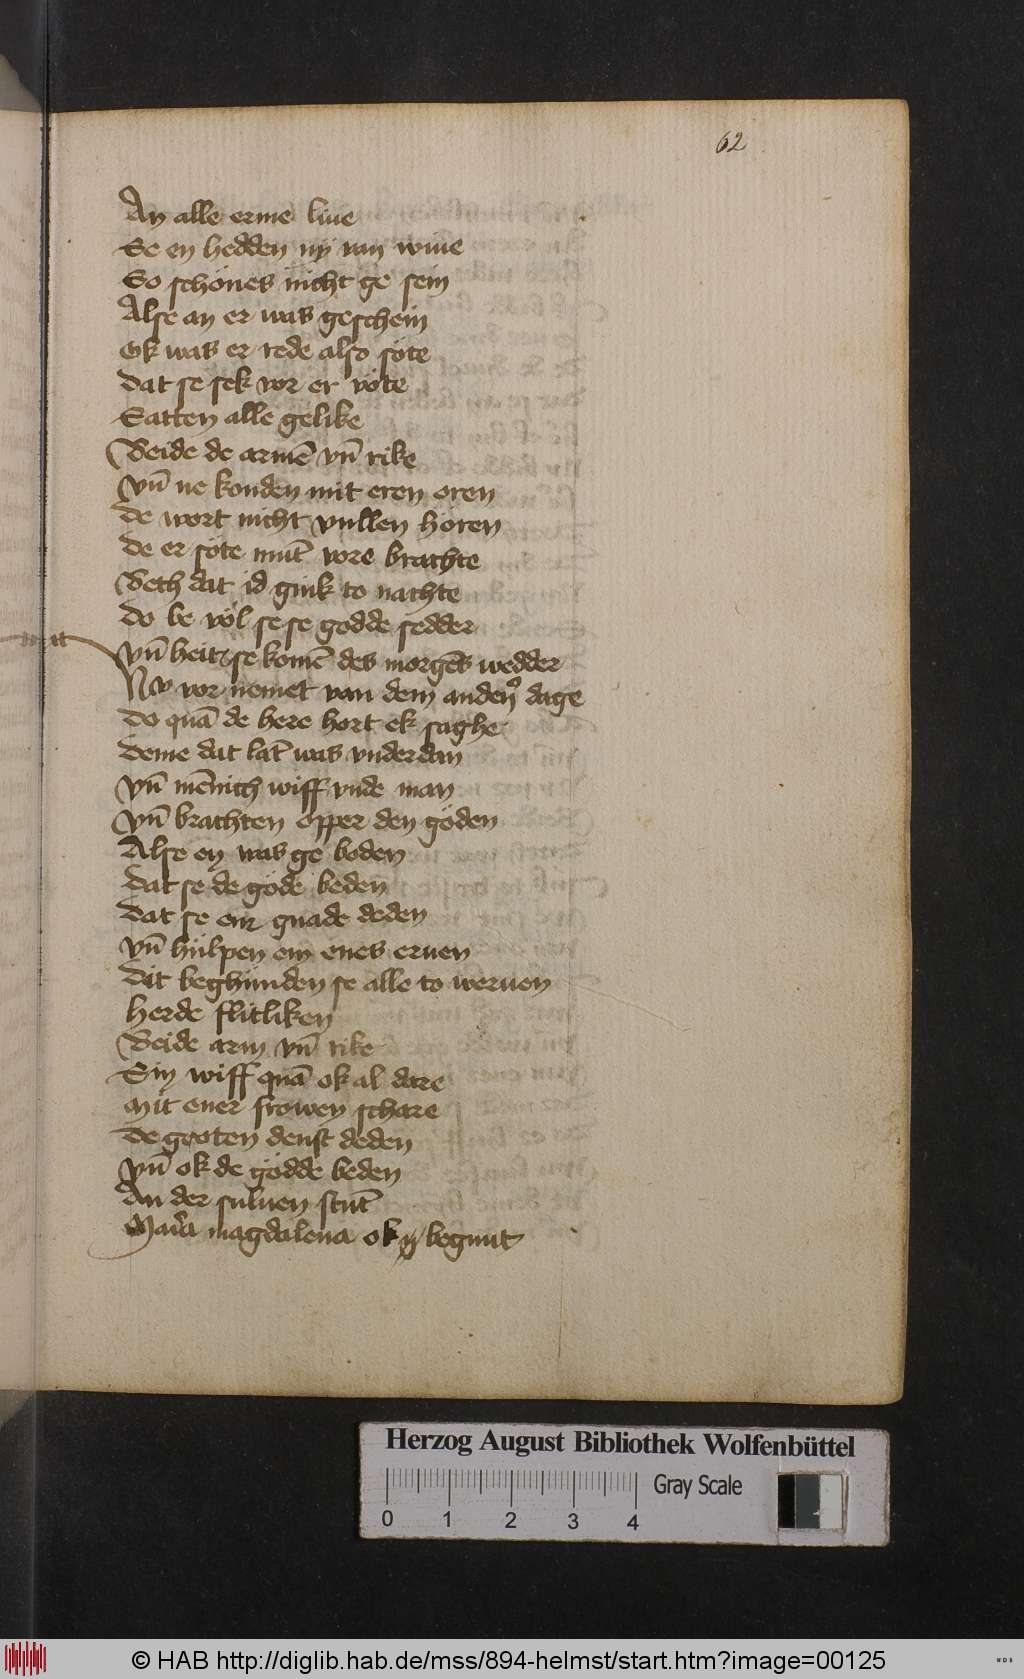 62
An alle erme liue
Se en hedden nÿ van wiue
So schönes nicht ge sein
Alse an er was geschein
Ok was er rede also söte
Dat se sek vor er vöte
Satten alle gelike
Beide de armē vn̄ rike
Vn̄ ne konden mit eren oren
De wort nicht vullen hören
De er söte mūt vore brachte
Beth dat id gink to nachte
Do be völ se se godde sedder
Vn̄ heit se komē des morgēs wedder
Nv vor nemet van dem anden dage
Do quā de here hort ek saghe
Deme dat lāt was vnderdan
Vn̄ mēnich wiff vnde man
Vn̄ brachten opper den göden
Alse en was ge boden
Dat se de göde beden
Dat se em gnade deden
Vn̄ hülpen em enes eruen
Dit beghünden se alle to weruen
Herde flitliken
Beide arm vn̄ rike
Sin wiff quā ok al dare
Mit ener frowen schare
De groten denst deden
Vn̄ ok de gödde beden
An der suluen stūt
Maria magdalena ok begunt
Herzog August Bibliothek Wolfenbüttel
Gray Scale
0 1 2 3 4
© HAB http://diglib.hab.de/mss/894-helmst/start.htm?image=00125